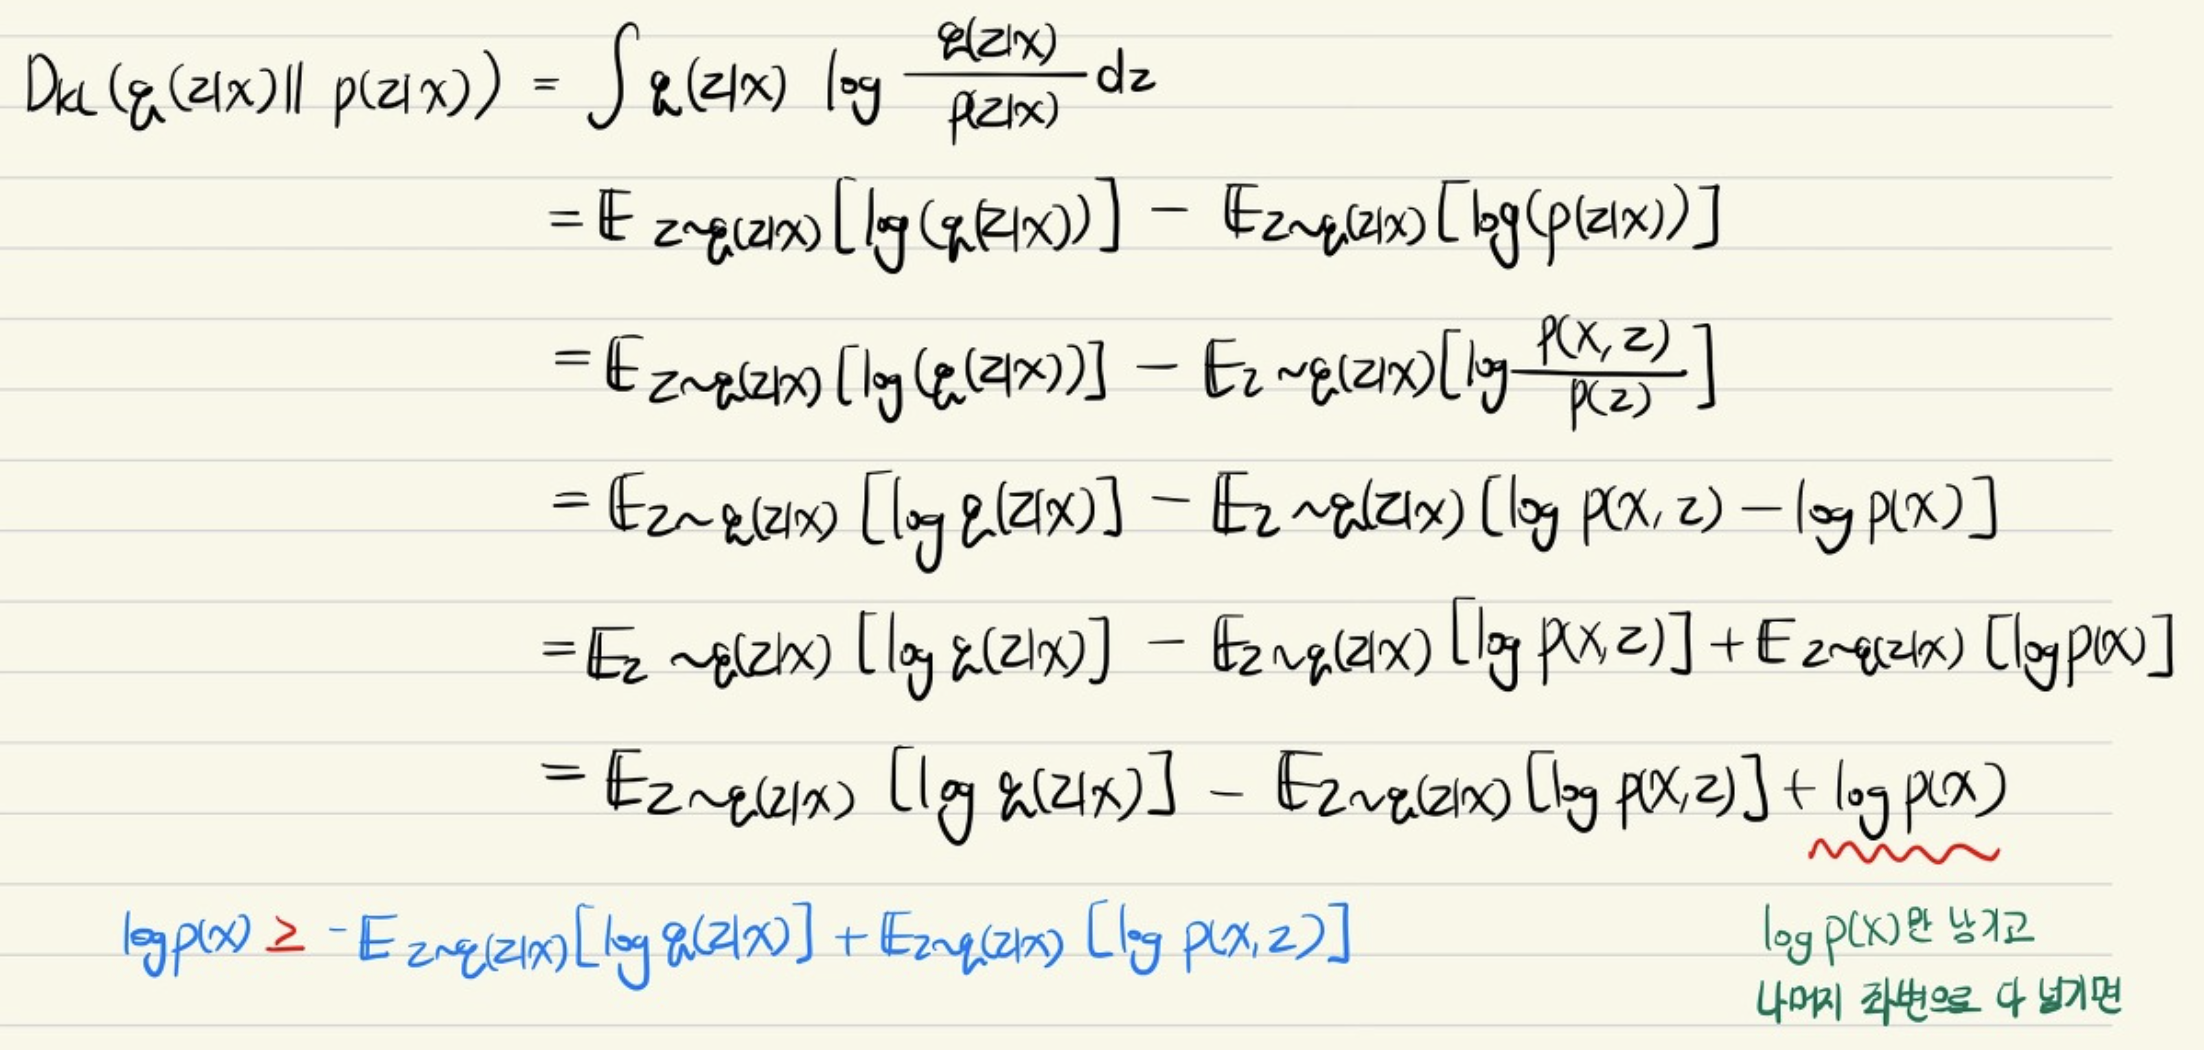 D_KL(q(z|x)‖ p(z|x)) = ∫ q(z|x) log q(z|x)/p(z|x) dz
= 𝔼_z~q(z|x)[log(q(z|x))] − 𝔼_z~q(z|x)[log(p(z|x))]
= 𝔼_z~q(z|x)[log(q(z|x))] − 𝔼_z~q(z|x)[log p(x,z)/p(z)]
= 𝔼_z~q(z|x)[log q(z|x)] − 𝔼_z~q(z|x)[log p(x,z) − log p(x)]
= 𝔼_z~q(z|x)[log q(z|x)] − 𝔼_z~q(z|x)[log p(x,z)] + 𝔼_z~q(z|x)[log p(x)]
= 𝔼_z~q(z|x)[log q(z|x)] − 𝔼_z~q(z|x)[log p(x,z)] + log p(x)
log p(x) ≥ −𝔼_z~q(z|x)[log q(z|x)] + 𝔼_z~q(z|x)[log p(x,z)]
log p(x)만 남기고
나머지 좌변으로 다 넘기면